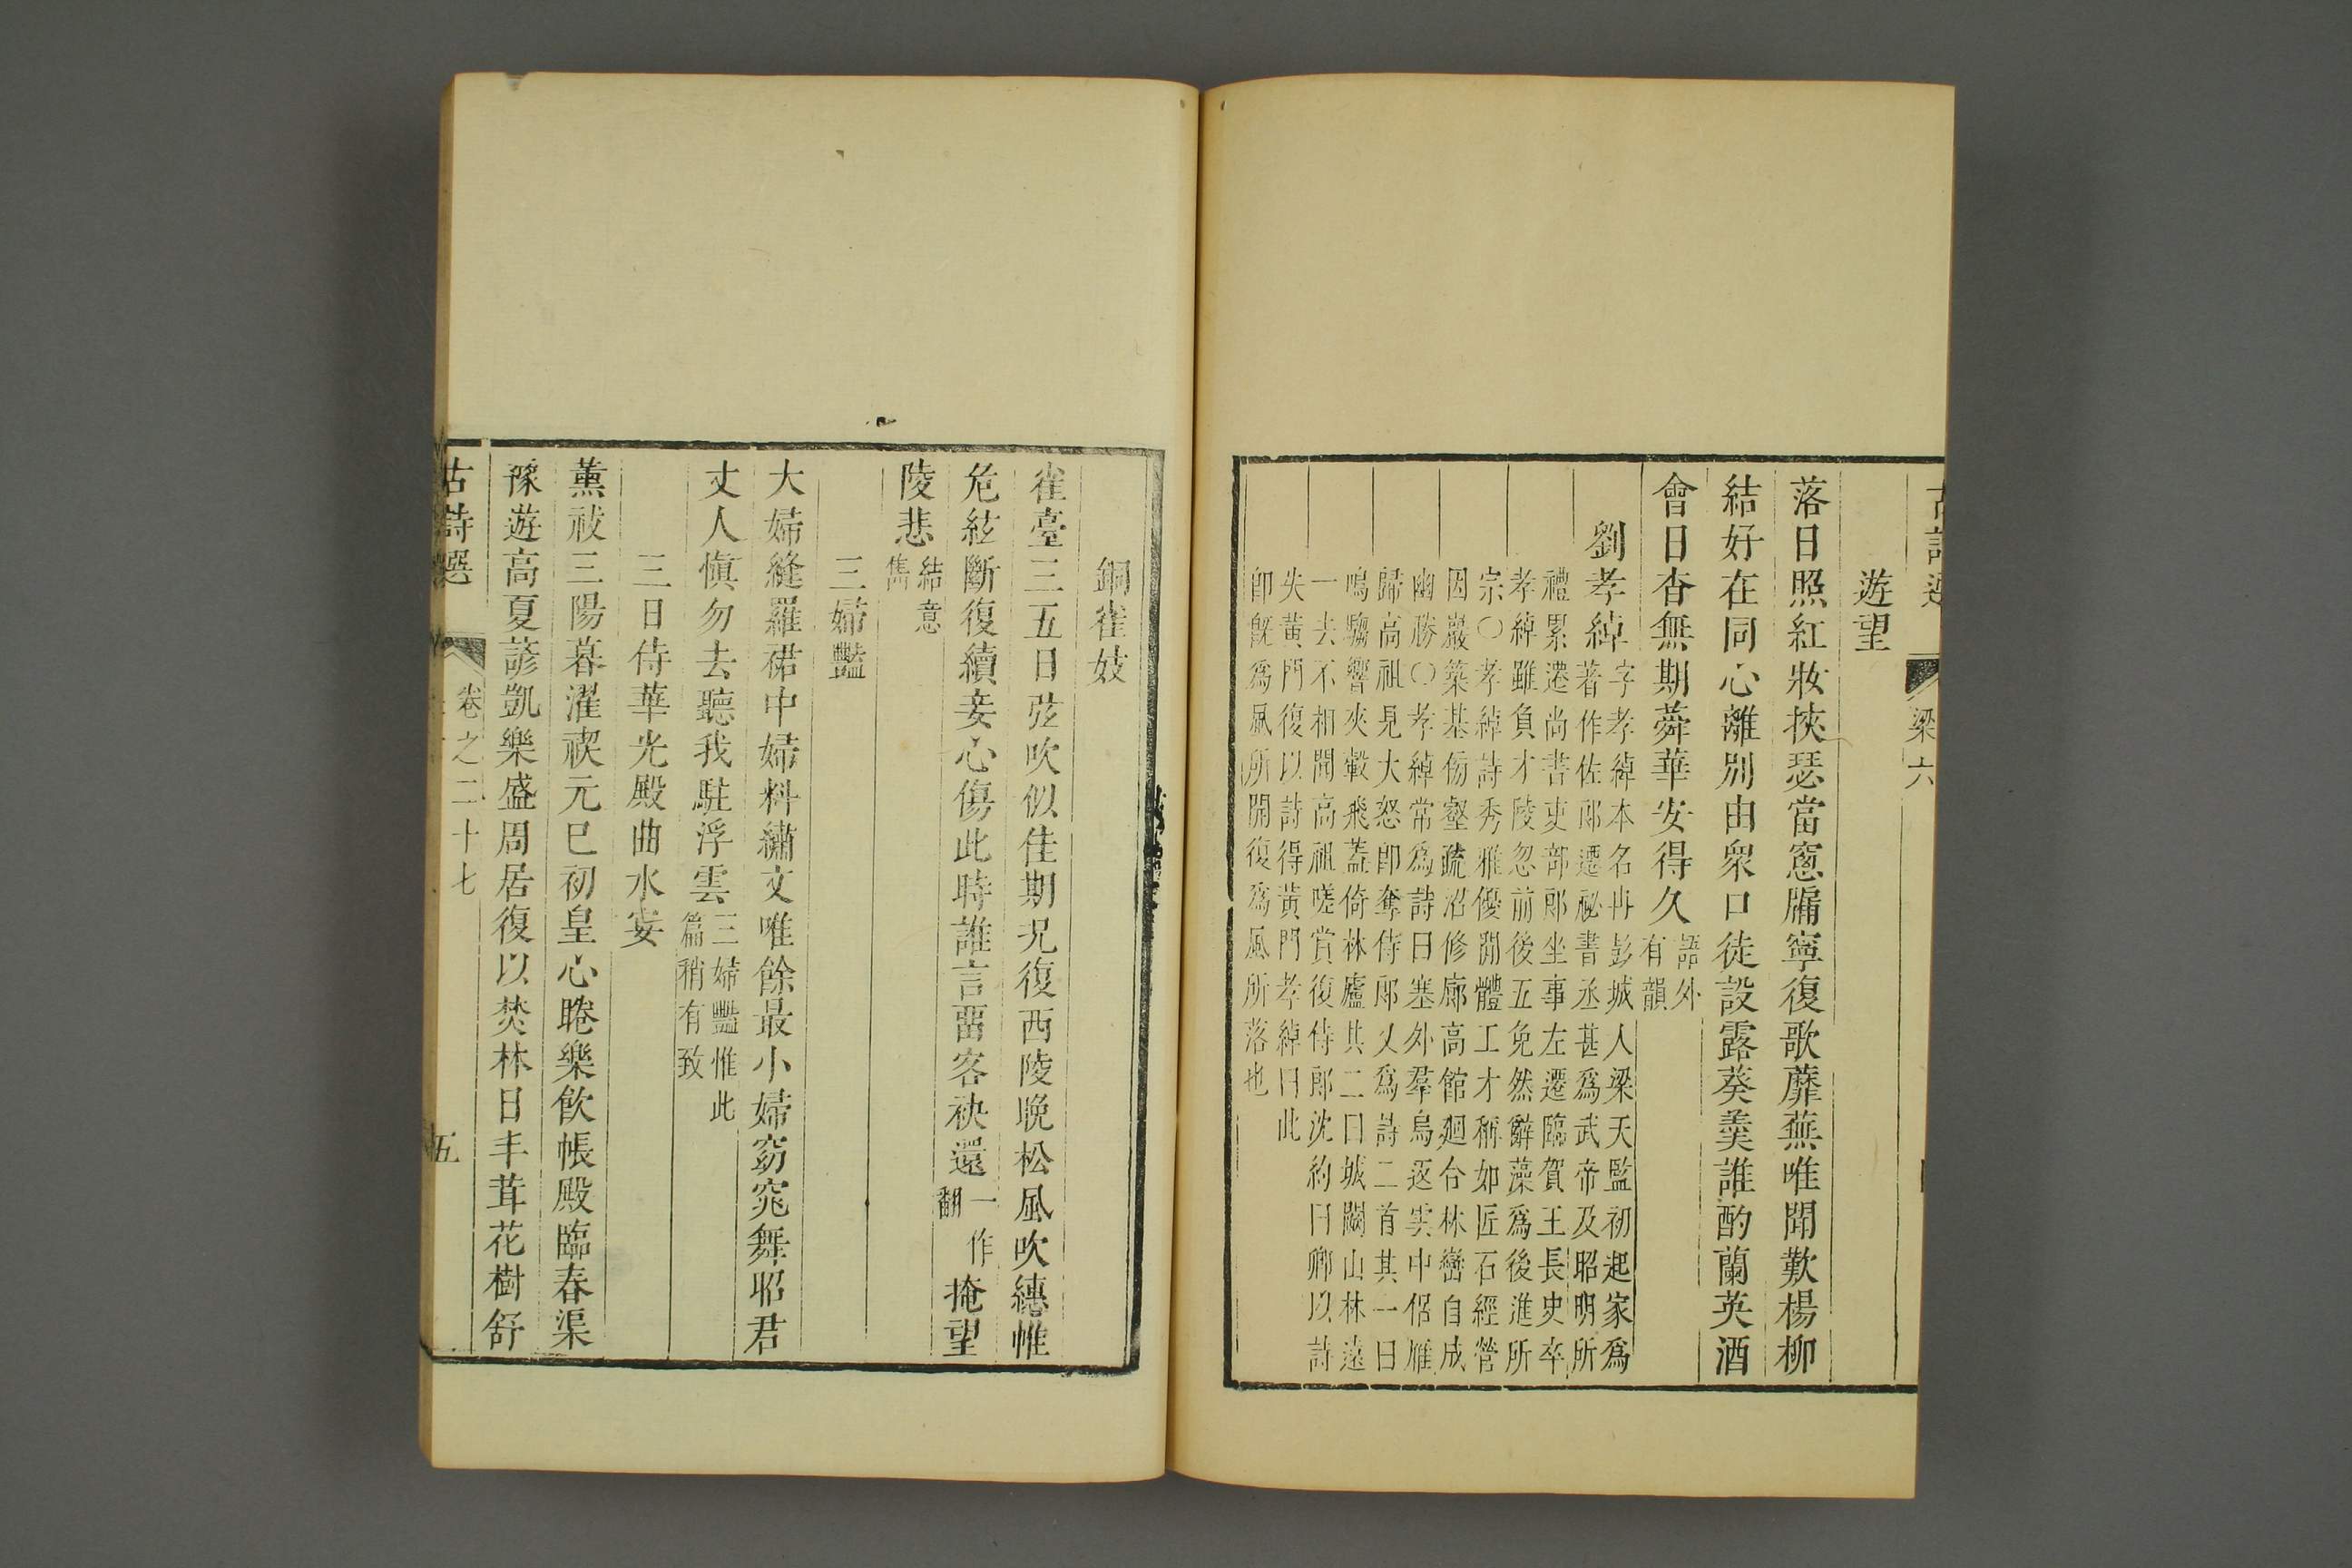 古詩選 梁六
遊望
落日照紅妝挾瑟當窻牖寧復歌蘼蕪唯聞歎楊柳
結好在同心離別由衆口徒設露葵羹誰酌蘭英酒
會日杳無期蕣華安得久語外有韻
劉孝綽字孝綽本名冉彭城人梁天監初起家爲
著作佐郎遷祕書丞甚爲武帝及昭明所
禮累遷尚書吏部郎坐事左遷臨賀王長史卒
孝綽雖負才陵忽前後五免然辭藻爲後進所
宗〇孝綽詩秀雅優閒體工才稱如匠石經營
因巖築基偭壑疏沼修廊高館迴合林巒自成
幽勝〇孝綽常爲詩曰塞外羣烏返雲中侶雁
歸高祖見大怒卽奪侍郎又爲詩二首其一曰
鳴騶響夾轂飛蓋倚林廬其二曰城闕山林遠
一去不相聞高祖嗟賞復侍郎沈約曰卿以詩
失黃門復以詩得黃門孝綽曰此
卽旣爲風所開復爲風所落也
銅雀妓
雀臺三五日弦吹似佳期況復西陵晚松風吹繐帷
危絃斷復續妾心傷此時誰言留客袂還一作翻掩望
陵悲結意雋
三婦豔
大婦縫羅裙中婦料繡文唯餘最小婦窈窕舞昭君
丈人愼勿去聽我駐浮雲三婦豔惟此篇稍有致
三日侍華光殿曲水宴
薰祓三陽暮濯禊元巳初皇心睠樂飮帳殿臨春渠
豫遊高夏諺凱樂盛周居復以焚林日丰茸花樹舒
古詩選 卷之二十七 五